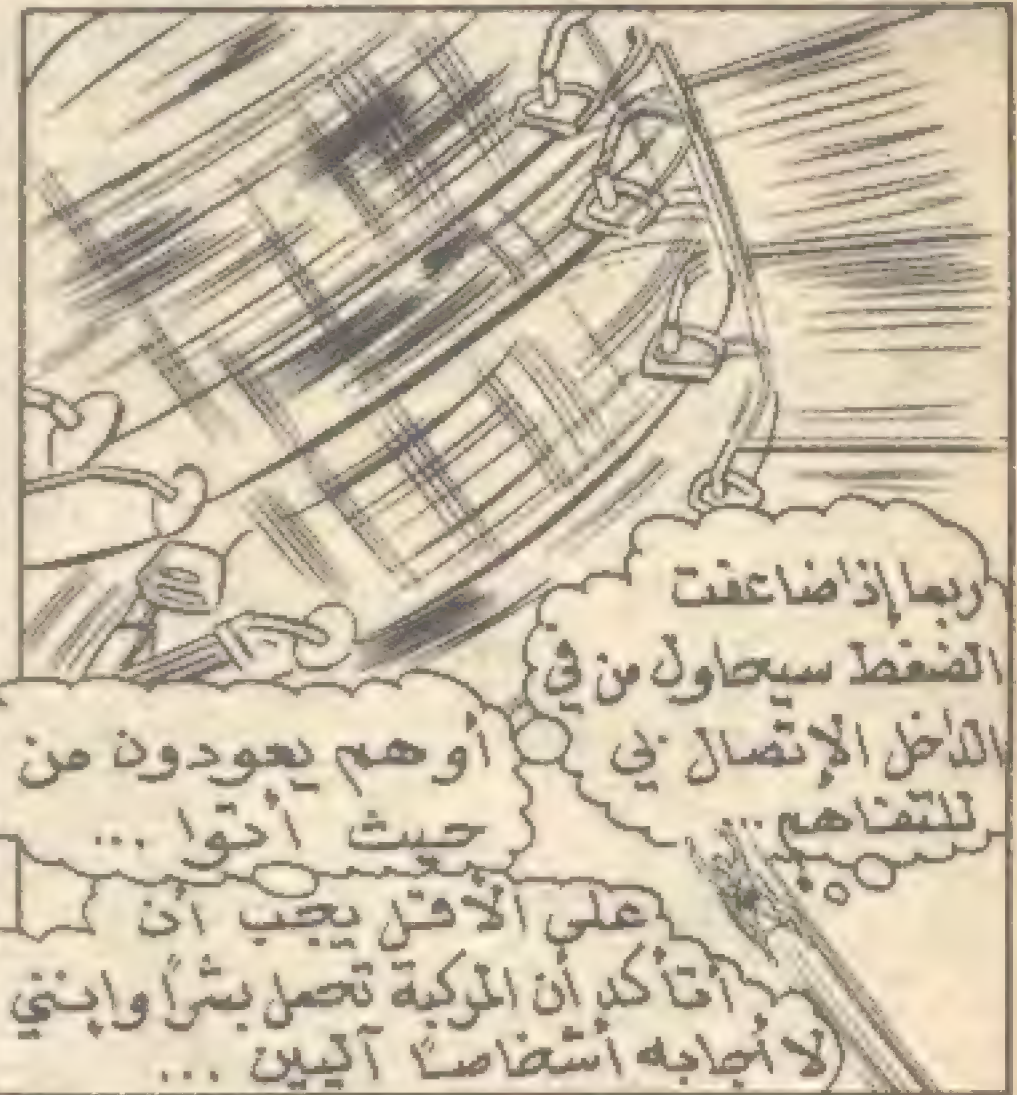 ربما إذا ضاعفت
الضغط سيحاول من في
الداخل الإتصال بي
للتفاهم...
أو هم يعودون من
حيث أتوا ...
على الأقل يجب أن
أتأكد أن المركبة تحمل بشراً وإنني
لا أجابه أشخاصاً آليين ...